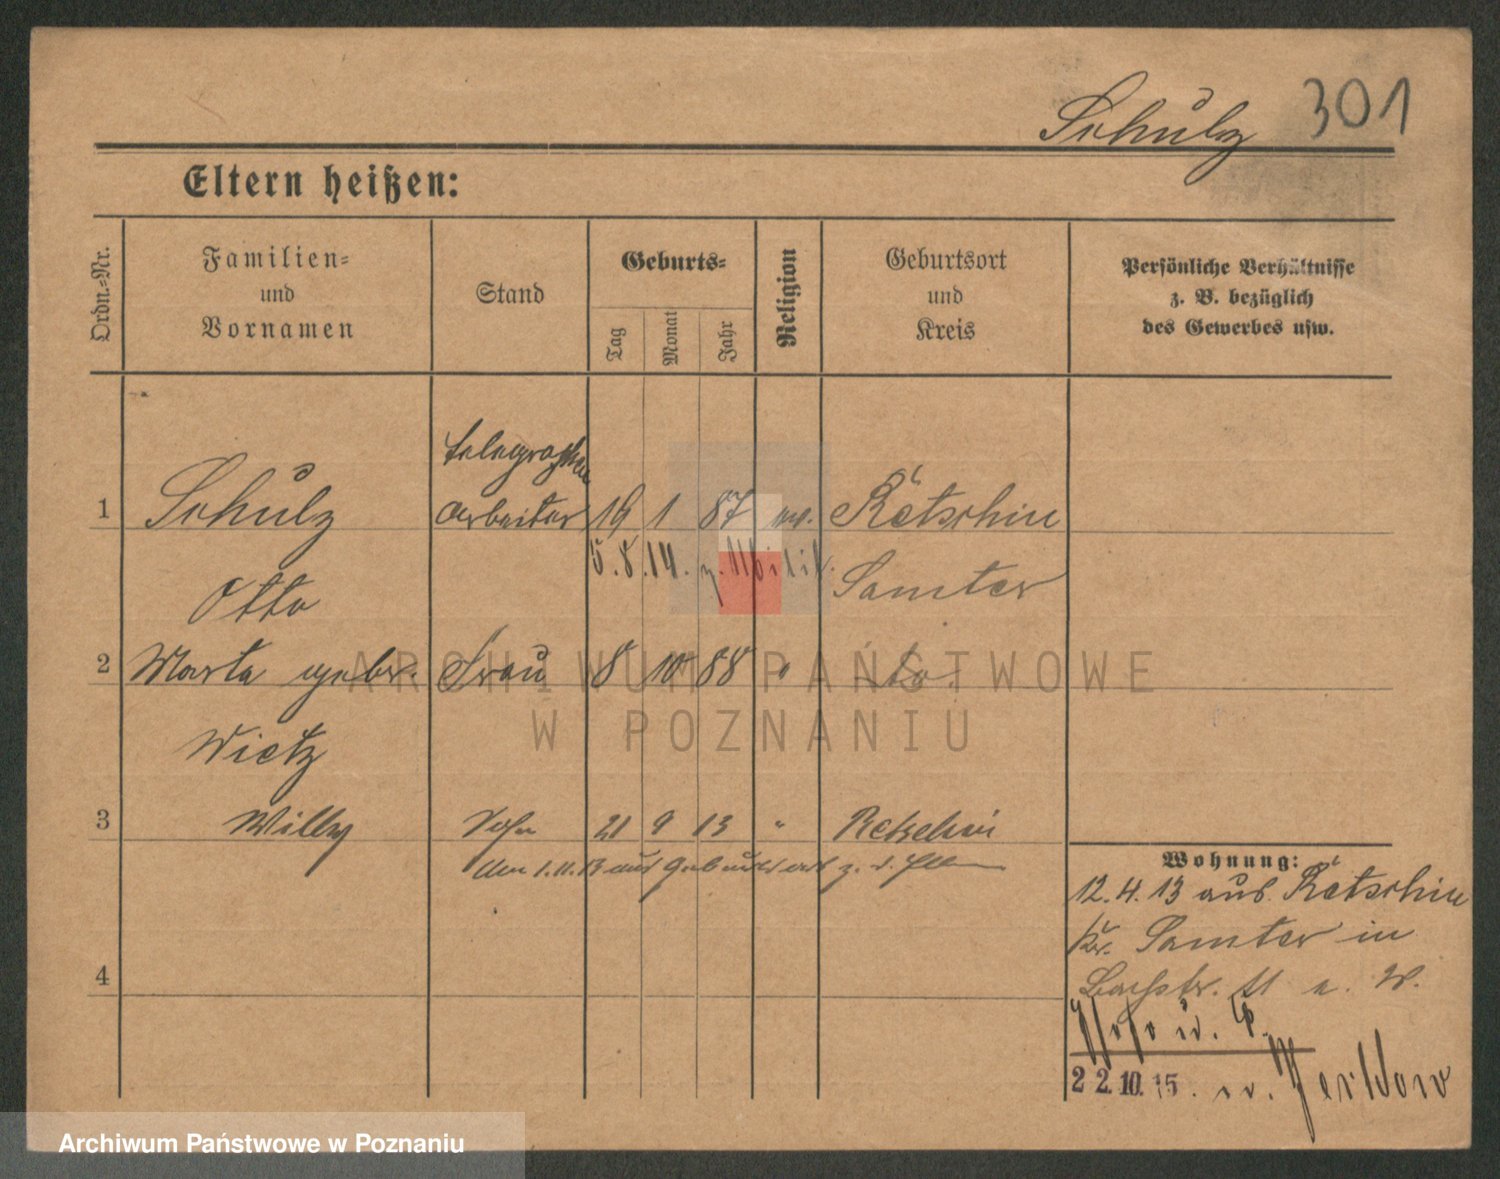 Schulz 301
Eltern heißen:
Ordn.=Nr.
Familien=
und
Vornamen
Stand
Geburts=
Tag
Monat
Jahr
Religion
Geburtsort
und
Kreis
Persönliche Verhältnisse
z. B. bezüglich
des Gewerbes usw.
telegraphen
1 Schulz arbeiter 19 1 87 ev. Retschin
5.8.14. z. Samter
Otto
2 Marta gebr. Frau 8 10 88 " dto.
Wietz
3 Willy Sohn 21 9 13 " Retschin
1.11.13 aus z.
Wohnung:
12.4.13 aus Retschin
Kr. Samter in
4
Bachstr. 11 a. W.
22.10.15.
ARCHIWUM PAŃSTWOWE
W POZNANIU
Archiwum Państwowe w Poznaniu